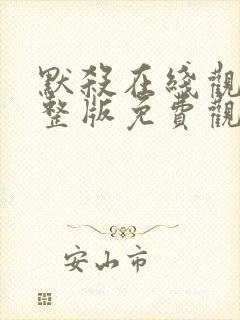 默殺在綫觀
整版免費觀
安山市